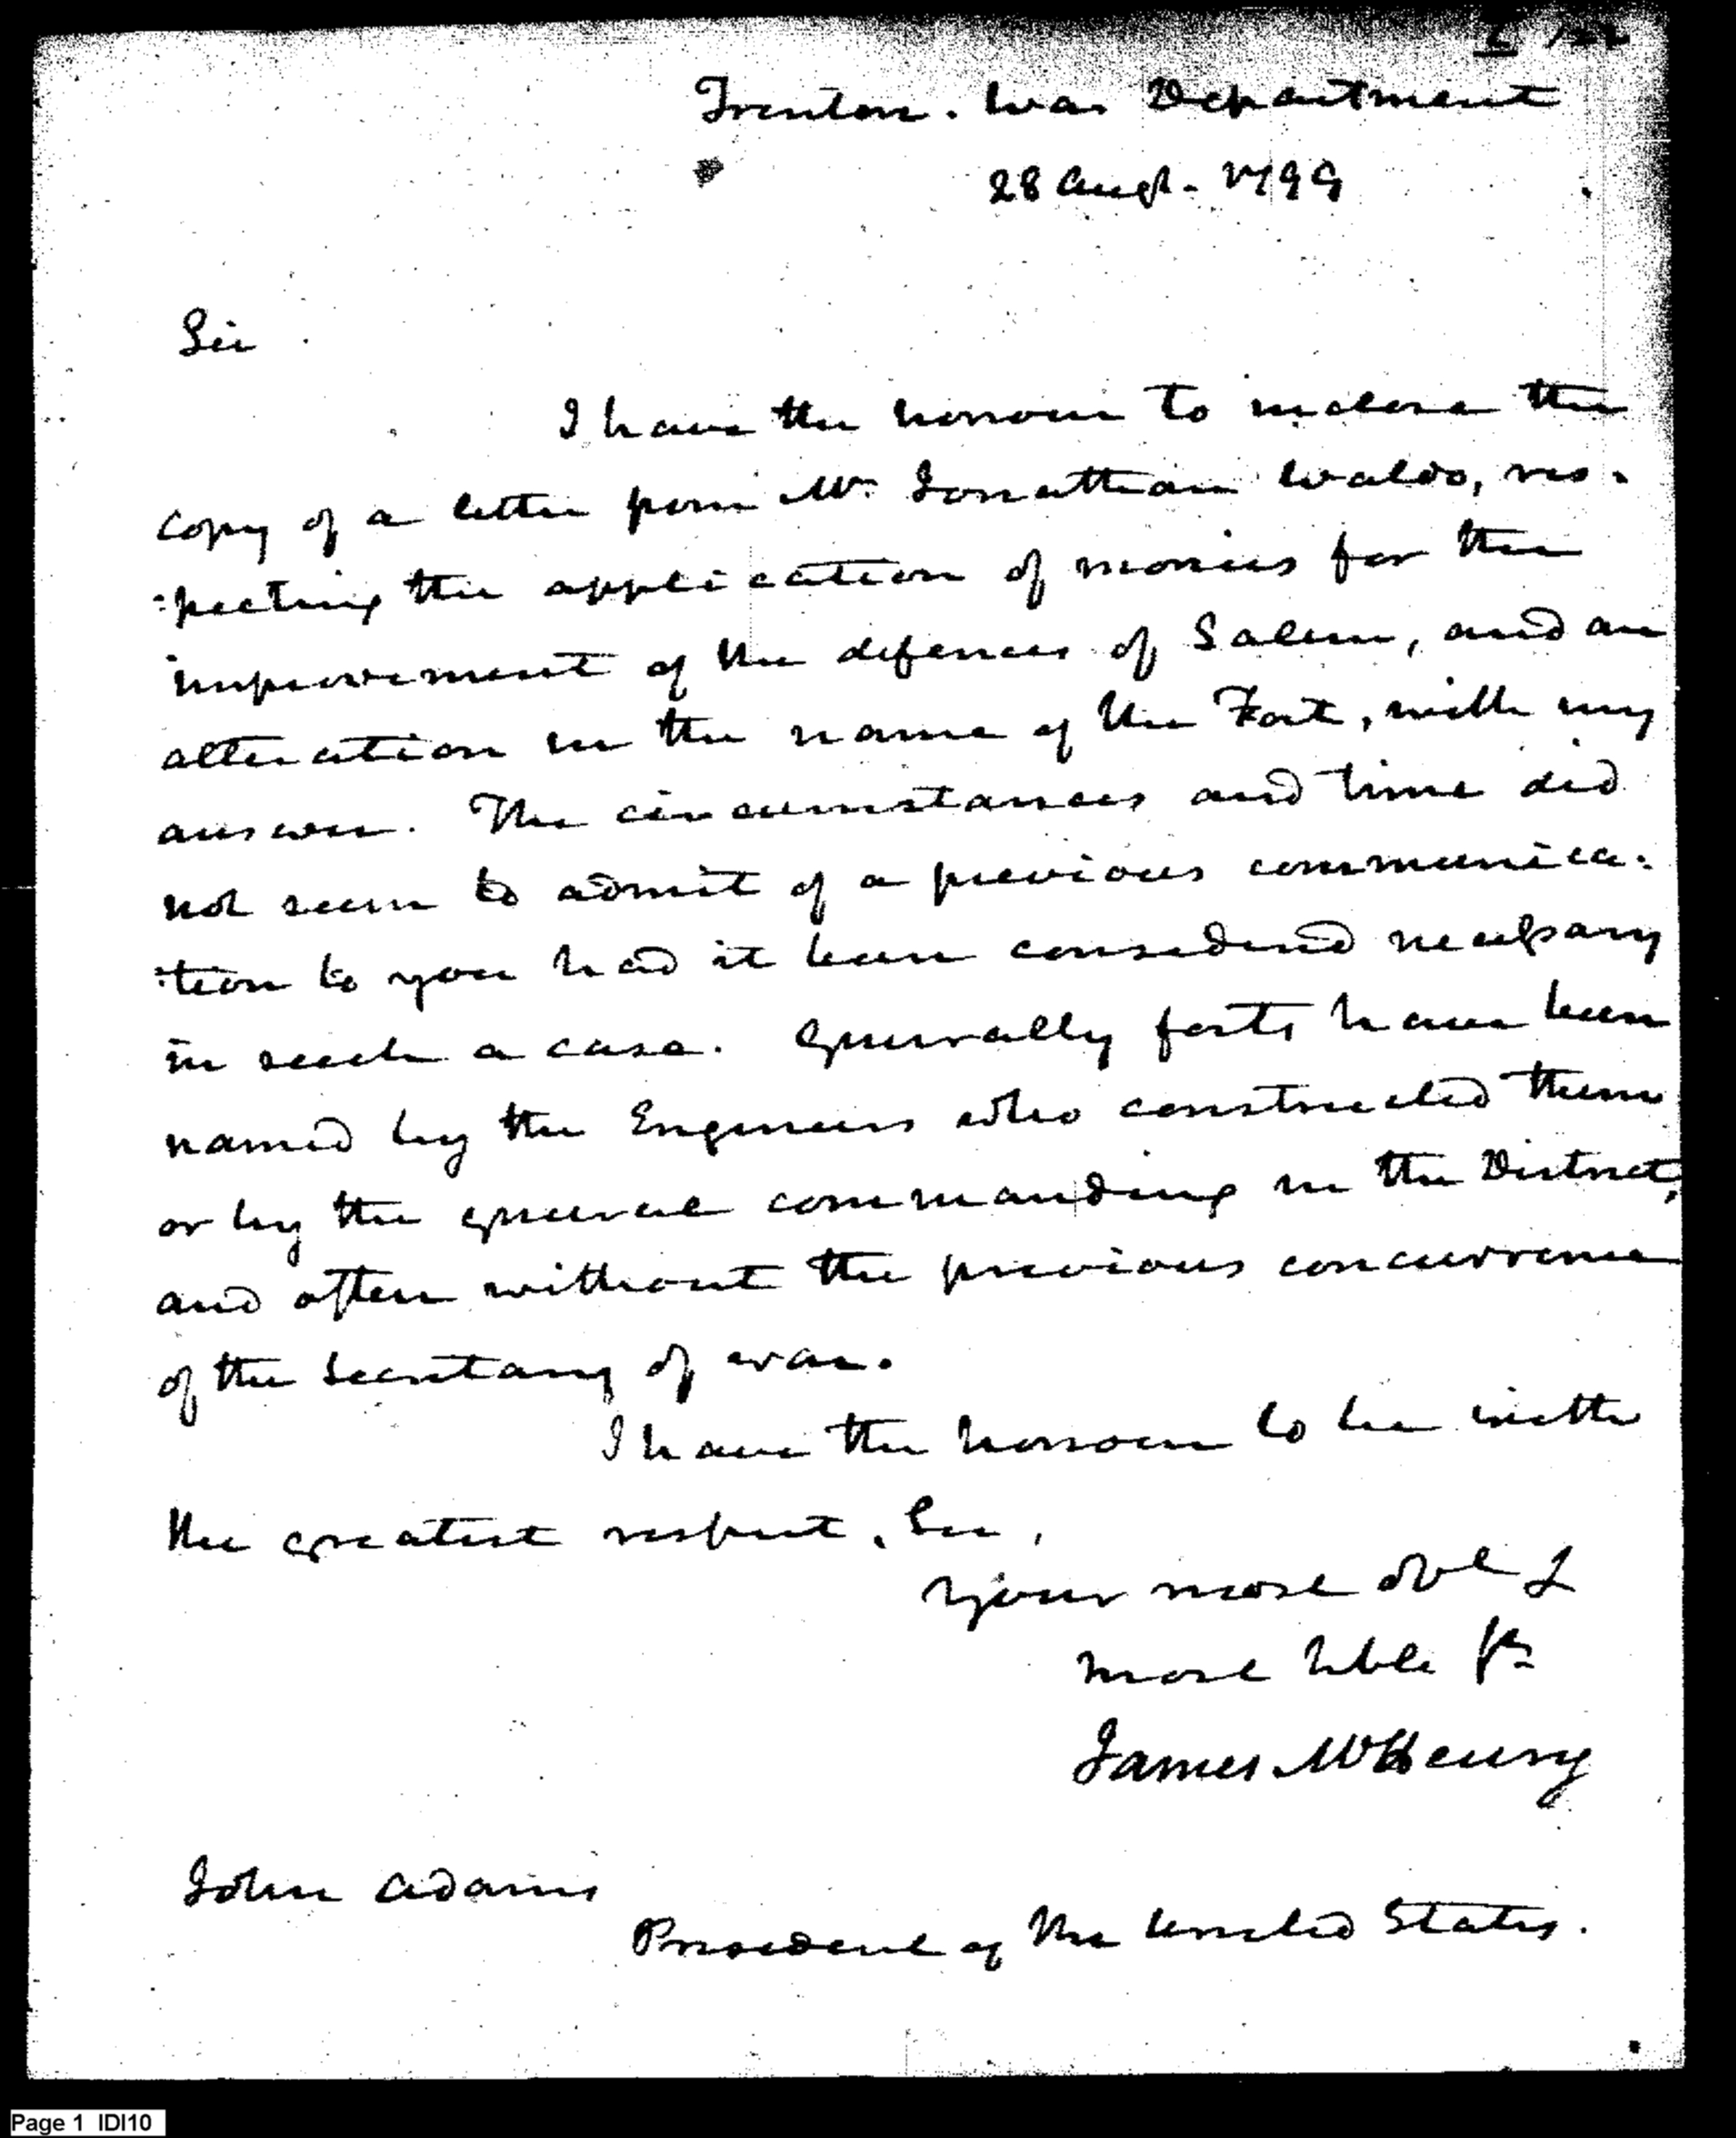 Trenton. War Department
28 Augt. 1799
Sir
I have the honour to inclose the
copy of a letter from Mr. Jonathan Waldo, res-
:pecting the application of monies for the
improvement of the defences of Salem, and an
alteration in the name of the Fort, with my
answer. The circumstances and time did
not seem to admit of a previous communica:
:tion to you had it been considered necessary
in such a case. Generally forts have been
named by the Engineers who constructed them
or by the general commanding in the District,
and often without the previous concurrence
of the Secretary of war.
I have the honour to be with
the greatest respect, Sir,
Your most obt &
most hble st
James McHenry
John Adams
President of the United States.
Page 1 IDI10